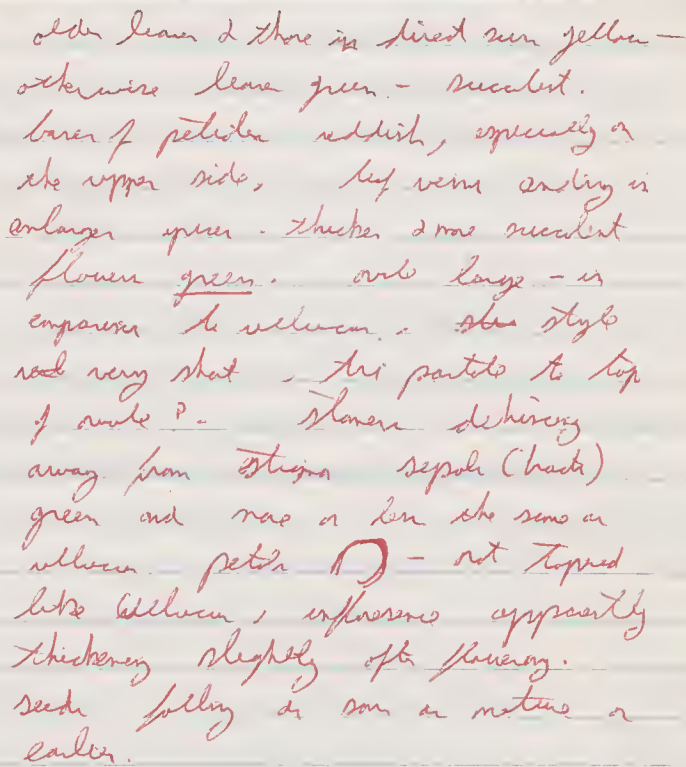 older leaves & those in direct sun yellow —
otherwise leaves green - succulent.
bases of petioles reddish, especially on
the upper side, leaf veins ending in
enlarges . thicker & more succulent
flowers green. ovule large - in
comparison to ullucus. style
very short , tri partate to top
of ovule ?. stamens dehiscing
away from stigma sepals (bracts)
green and more or less the same as
ullucus petals - not tapered
like Ullucus, infloresence apparently
thickening slightly after flowering.
seeds falling as soon as mature or
earlier.